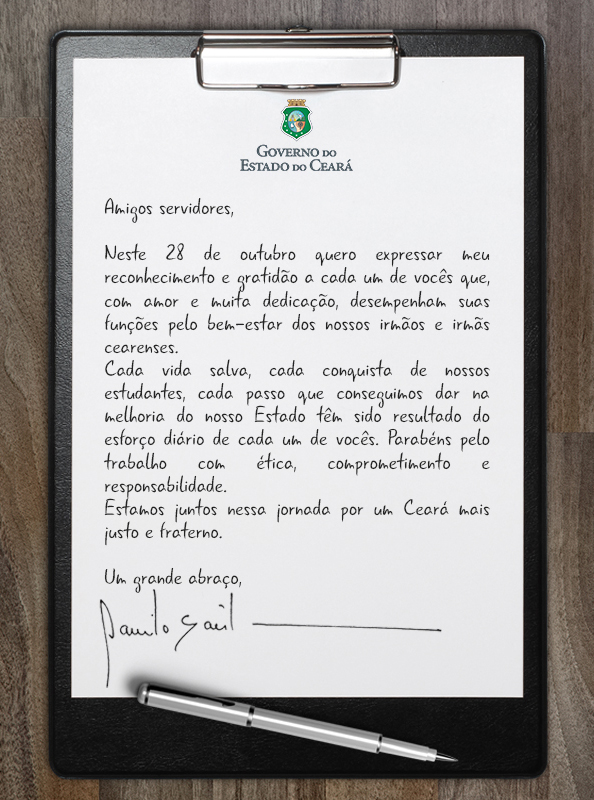 GOVERNO DO
ESTADO DO CEARÁ
Amigos servidores,
Neste 28 de outubro quero expressar meu
reconhecimento e gratidão a cada um de vocês que,
com amor e muita dedicação, desempenham suas
funções pelo bem-estar dos nossos irmãos e irmãs
cearenses.
Cada vida salva, cada conquista de nossos
estudantes, cada passo que conseguimos dar na
melhoria do nosso Estado têm sido resultado do
esforço diário de cada um de vocês. Parabéns pelo
trabalho com ética, comprometimento e
responsabilidade.
Estamos juntos nessa jornada por um Ceará mais
justo e fraterno.
Um grande abraço,